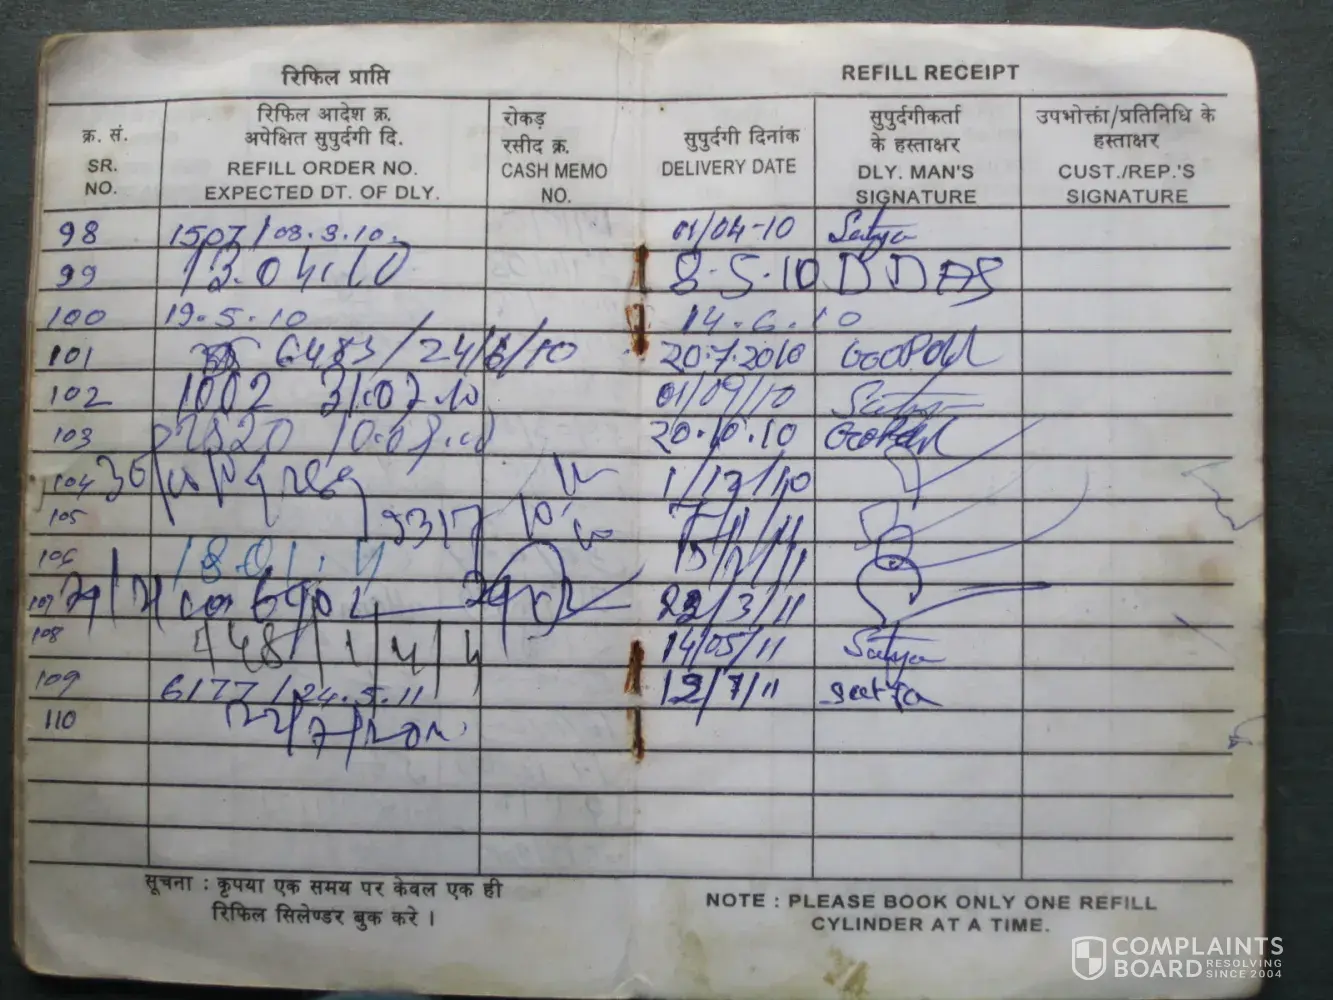 रिफिल प्राप्ति
REFILL RECEIPT
क्र. सं.
SR.
NO.
रिफिल आदेश क्र.
अपेक्षित सुपुर्दगी दि.
REFILL ORDER NO.
EXPECTED DT. OF DLY.
रोकड़
रसीद क्र.
CASH MEMO
NO.
सुपुर्दगी दिनांक
DELIVERY DATE
सुपुर्दगीकर्ता
के हस्ताक्षर
DLY. MAN'S
SIGNATURE
उपभोक्ता/प्रतिनिधि के
हस्ताक्षर
CUST./REP.'S
SIGNATURE
98 1507/03.3.10. 01/04-10 Satya
99 13.04.10 8.5.10 D DAS
100 19.5.10 14.6.10
101 6483/24/6/10 20.7.2010 GOOPAL
102 1002 31.07.10 01/09/10 Satya
103 20.10.10 GOOPAL
104 1/12/10
105 9317
106 18.01.11
107 22/3/11
108 448/1/4/4 14/05/11 Satya
109 6177/24.5.11 12/7/11 Satya
110
सूचना : कृपया एक समय पर केवल एक ही
रिफिल सिलेण्डर बुक करे ।
NOTE : PLEASE BOOK ONLY ONE REFILL
CYLINDER AT A TIME.
COMPLAINTS
BOARD RESOLVING
SINCE 2004